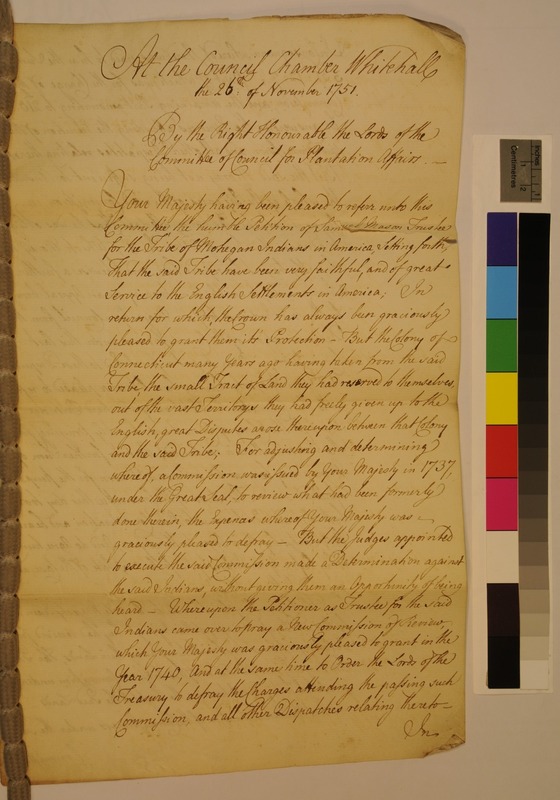 At the Council Chamber Whitehall
the 26th of November 1751.
By the Right Honourable the Lords of the
Committee of Council for Plantation Affairs. —
Your Majesty having been pleased to referr unto this
Committee the humble Petition of Samuel Mason Trustee
for the Tribe of Mohegan Indians in America, Setting forth,
that the said Tribe have been very faithful, and of great
Service to the English Settlements in America; In
return for which, the Crown has always been graciously
pleased to grant them its Protection – But the Colony of
Connecticut many Years ago having taken from the said
Tribe the small Tract of Land they had reserved to themselves,
out of the vast Territorys they had freely given up to the
English, great Disputes arose thereupon between that Colony
and the said Tribe; For adjusting and determining
whereof, a Commission was issued by Your Majesty in 1737,
under the Great Seal, to review what had been formerly
done therein, the Expences whereof Your Majesty was –
graciously pleased to defray – But the Judges appointed
to execute the said Commission made a Determination against
the said Indians, without giving them an Opportunity of being
heard – Whereupon the Petitioner as Trustee for the said
Indians came over to pray a New Commission of Review,
which Your Majesty was graciously pleased to grant in the
Year 1740, And at the same time to Order the Lords of the
Treasury to defray the Charges attending the passing such
Commission, and all other Dispatches relating thereto –
In
Inches
Centimetres
1
2
1